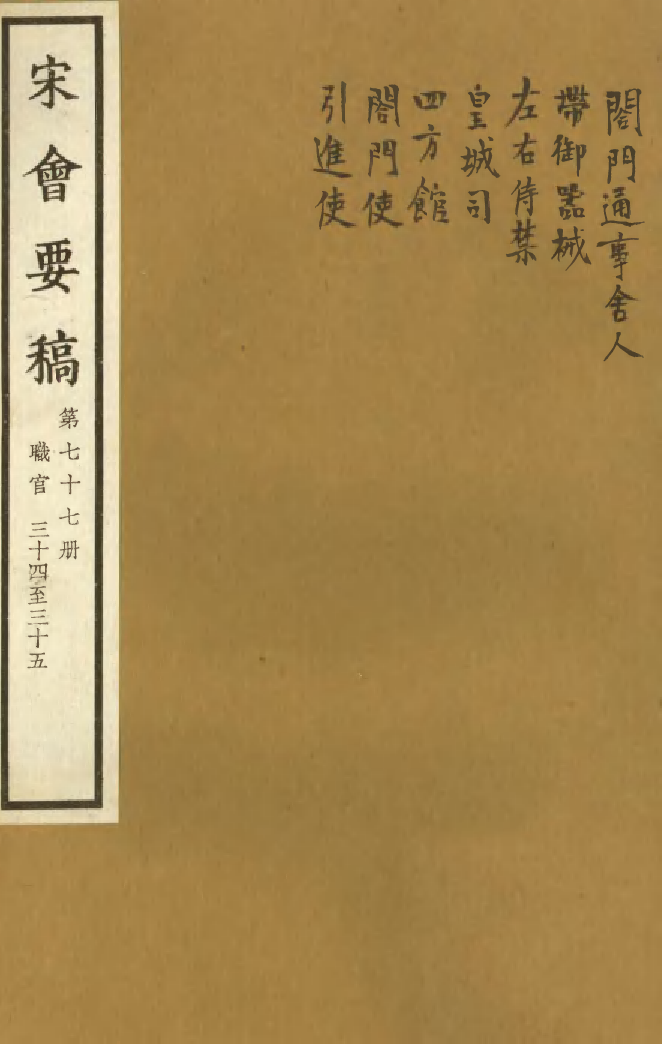 閤門通事舍人
帶御器械
左右侍禁
皇城司
四方館
閤門使
引進使
宋會要稿
第七十七册
職官 三十四至三十五